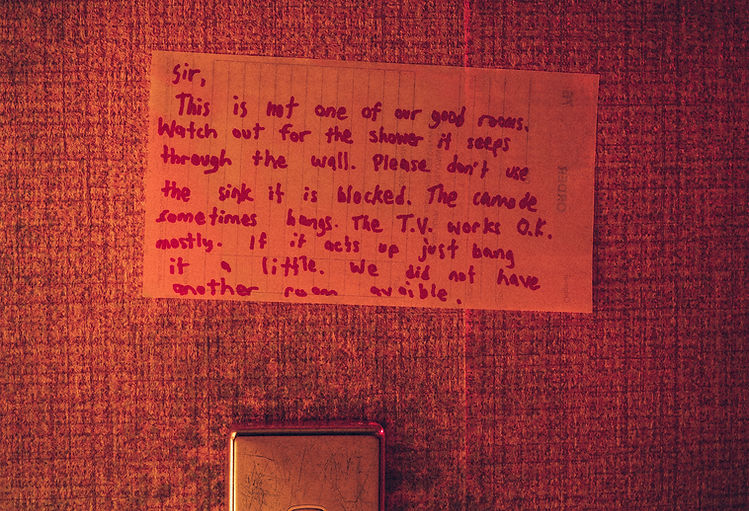 Sir,
This is not one of our good rooms.
Watch out for the shower it seeps
through the wall. Please don't use
the sink it is blocked. The camode
sometimes bangs. The T.V. works O.K.
mostly. If it acts up just bang
it a little. We did not have
another room avaible.